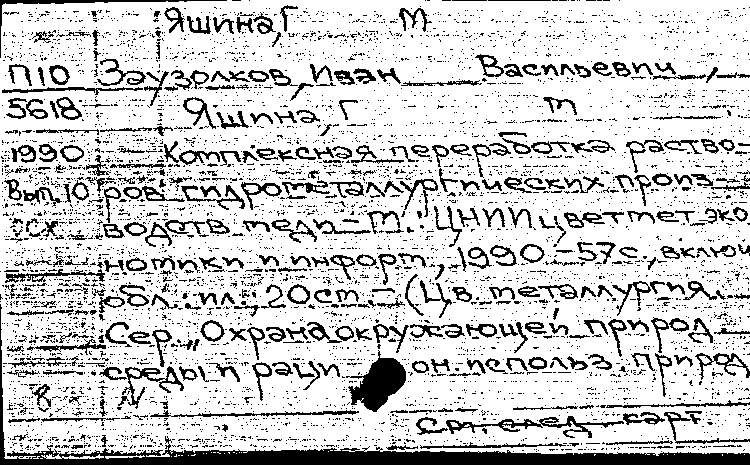 Яшина, Г М
П10 Заузолков, Иван Васильевич,
5618 Яшина, Г М
1990 Комплексная переработка раство-
Вып. 10 ров гидрометаллургических произ-
водств меди – М.: ЦНИИцветмет эко
номики и информ., 1990. – 57с., включ
обл.: ил.; 20см. – (Цв. металлургия.
Сер. „Охрана окружающей природ
среды и раци он. использ. природ
8
См. след. карт.